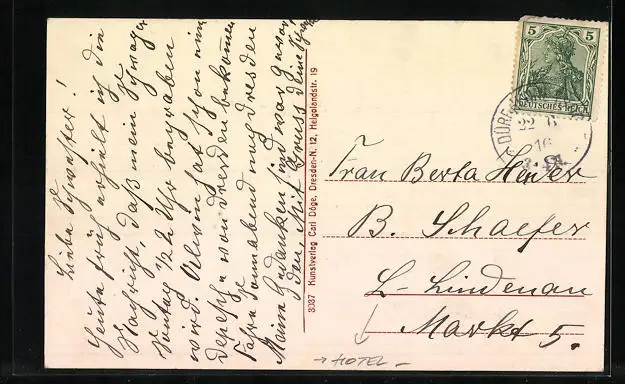 Liebe Schwester!
Heute früh erhielt ich die
Nachricht, daß mein Schwager
Sontag 1/2 2 Uhr begraben
wird. Alwin hat schon eine
Depesche von Dresden bekommen
fahre Sonabend nach Dresden
Meine Gedanken sind war gewor
den. Mit Gruss deine
3937 Kunstverlag Carl Döge, Dresden-N. 12, Helgolandstr. 19
5 5
DEUTSCHES REICH
DÜRR
22 6
16
Frau Berta
B. Schaefer
L- Lindenau
Markt 5.
→ HOTEL -